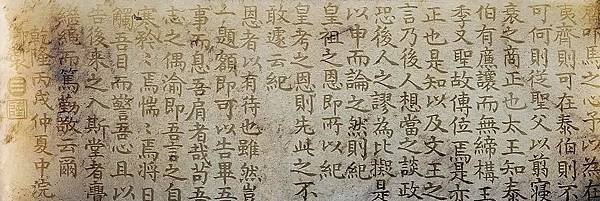 叩馬之心子以為在
夷齊則可在泰伯則不
可何則從聖父以翦寢
衰之商正也太王知泰
伯有廉讓而無締構王
季又聖故傳位焉是亦
正也是知以及文王之
言乃後人想當之談政
恐後人之謬為比擬是
以申而論之然則紀
皇祖之恩即所以紀
皇考之恩則先此之不
敢遽云紀
恩者以有待也雖然豈
一題額即可以告畢吾
事而息吾肩者哉苟吾
志之偶渝即吾言之自
寒於〻焉惴〻焉將日
觸吾目而警吾心且以
告後來之入斯堂者亹
而篤勤敬云爾
乾隆丙戌仲夏中浣